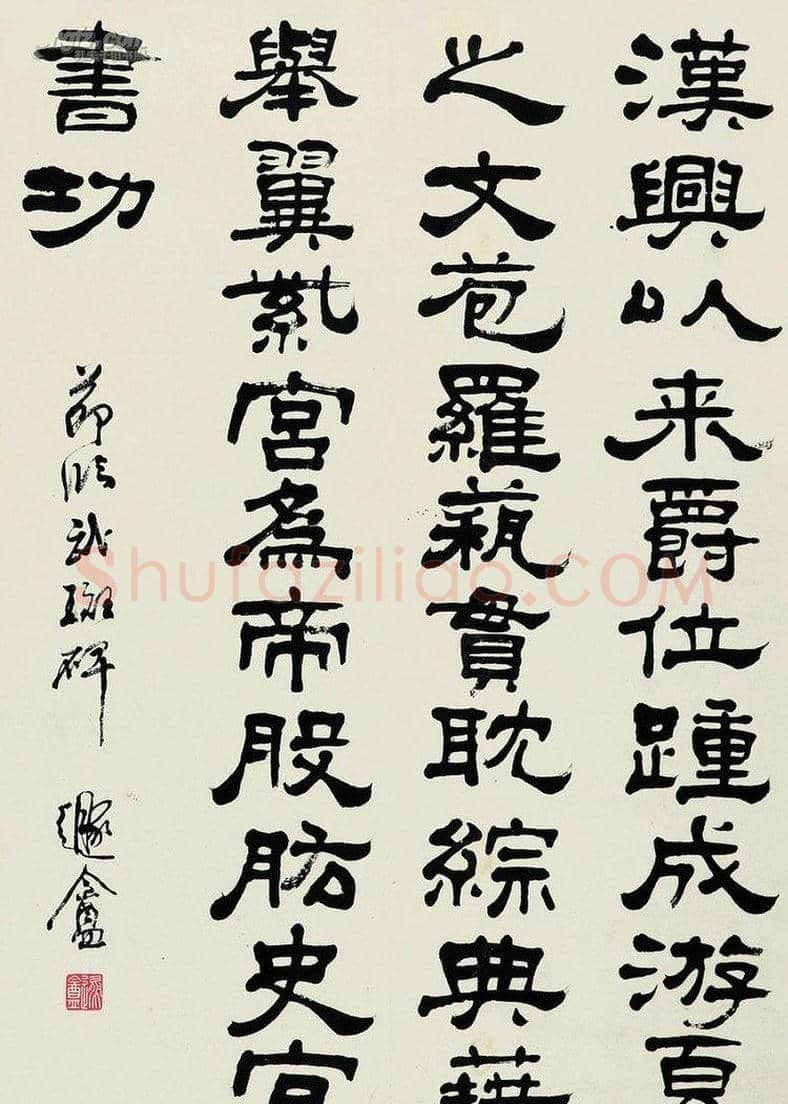 漢興以来爵位踵成游夏
之文苞羅蓺貫耽綜典藉
舉翼紫宮為帝股肱史官
書功
節臨武斑碑
Shufaziliao.COM